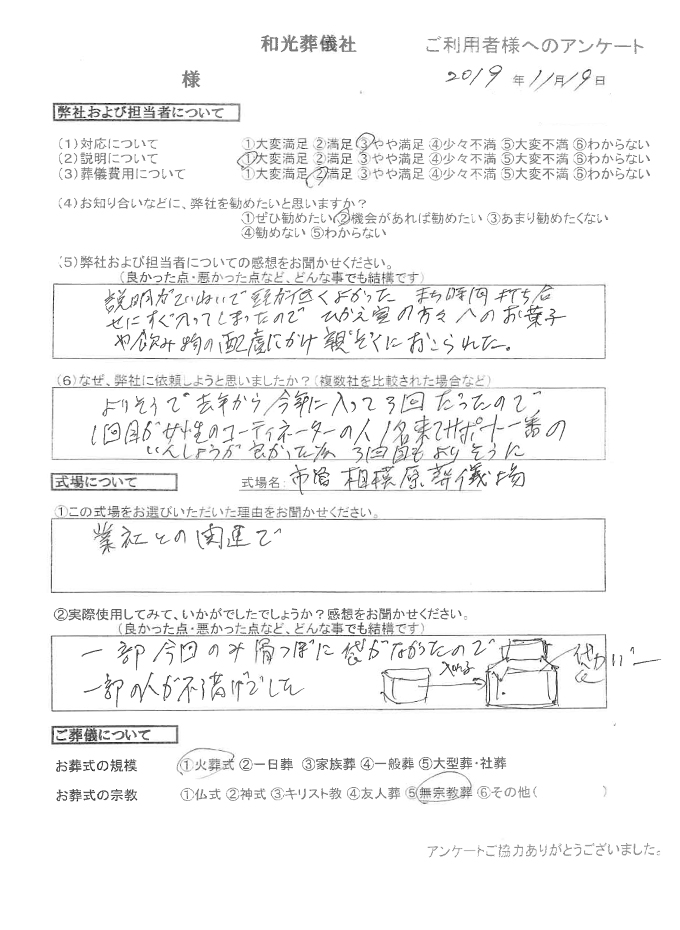 和光葬儀社 ご利用者様へのアンケート
様 2019 年 11月 19日
弊社および担当者について
(1)対応について ①大変満足 ②満足 ③やや満足 ④少々不満 ⑤大変不満 ⑥わからない
(2)説明について ①大変満足 ②満足 ③やや満足 ④少々不満 ⑤大変不満 ⑥わからない
(3)葬儀費用について ①大変満足 ②満足 ③やや満足 ④少々不満 ⑤大変不満 ⑥わからない
(4)お知り合いなどに、弊社を勧めたいと思いますか?
①ぜひ勧めたい ②機会があれば勧めたい ③あまり勧めたくない
④勧めない ⑤わからない
(5)弊社および担当者についての感想をお聞かせください。
(良かった点・悪かった点など、どんな事でも結構です)
説明がていねいで 頭が低くよかった まち時間 打ち合
せにすぐ入ってしまったので ひかえ室の方々へのお菓子
や飲み物の配慮にかけ 親ぞくにおこられた。
(6)なぜ、弊社に依頼しようと思いましたか?(複数社を比較された場合など)
よりそうで 去年から 今年に入って 3回 だったので
1回目が女性のコーディネーターの人 1名来てサポート一番の
いんしょうが良かった 3回目も よりそうに
式場について 式場名: 市営 相模原葬儀場
①この式場をお選びいただいた理由をお聞かせください。
業社との関連で
②実際使用してみて、いかがでしたでしょうか?感想をお聞かせください。
(良かった点・悪かった点など、どんな事でも結構です)
一部今回のみ骨つぼに 袋がなかったので
一部の人が不満げでした 入れる 袋カバー
ご葬儀について
お葬式の規模 ①火葬式 ②一日葬 ③家族葬 ④一般葬 ⑤大型葬・社葬
お葬式の宗教 ①仏式 ②神式 ③キリスト教 ④友人葬 ⑤無宗教葬 ⑥その他( )
アンケートご協力ありがとうございました。